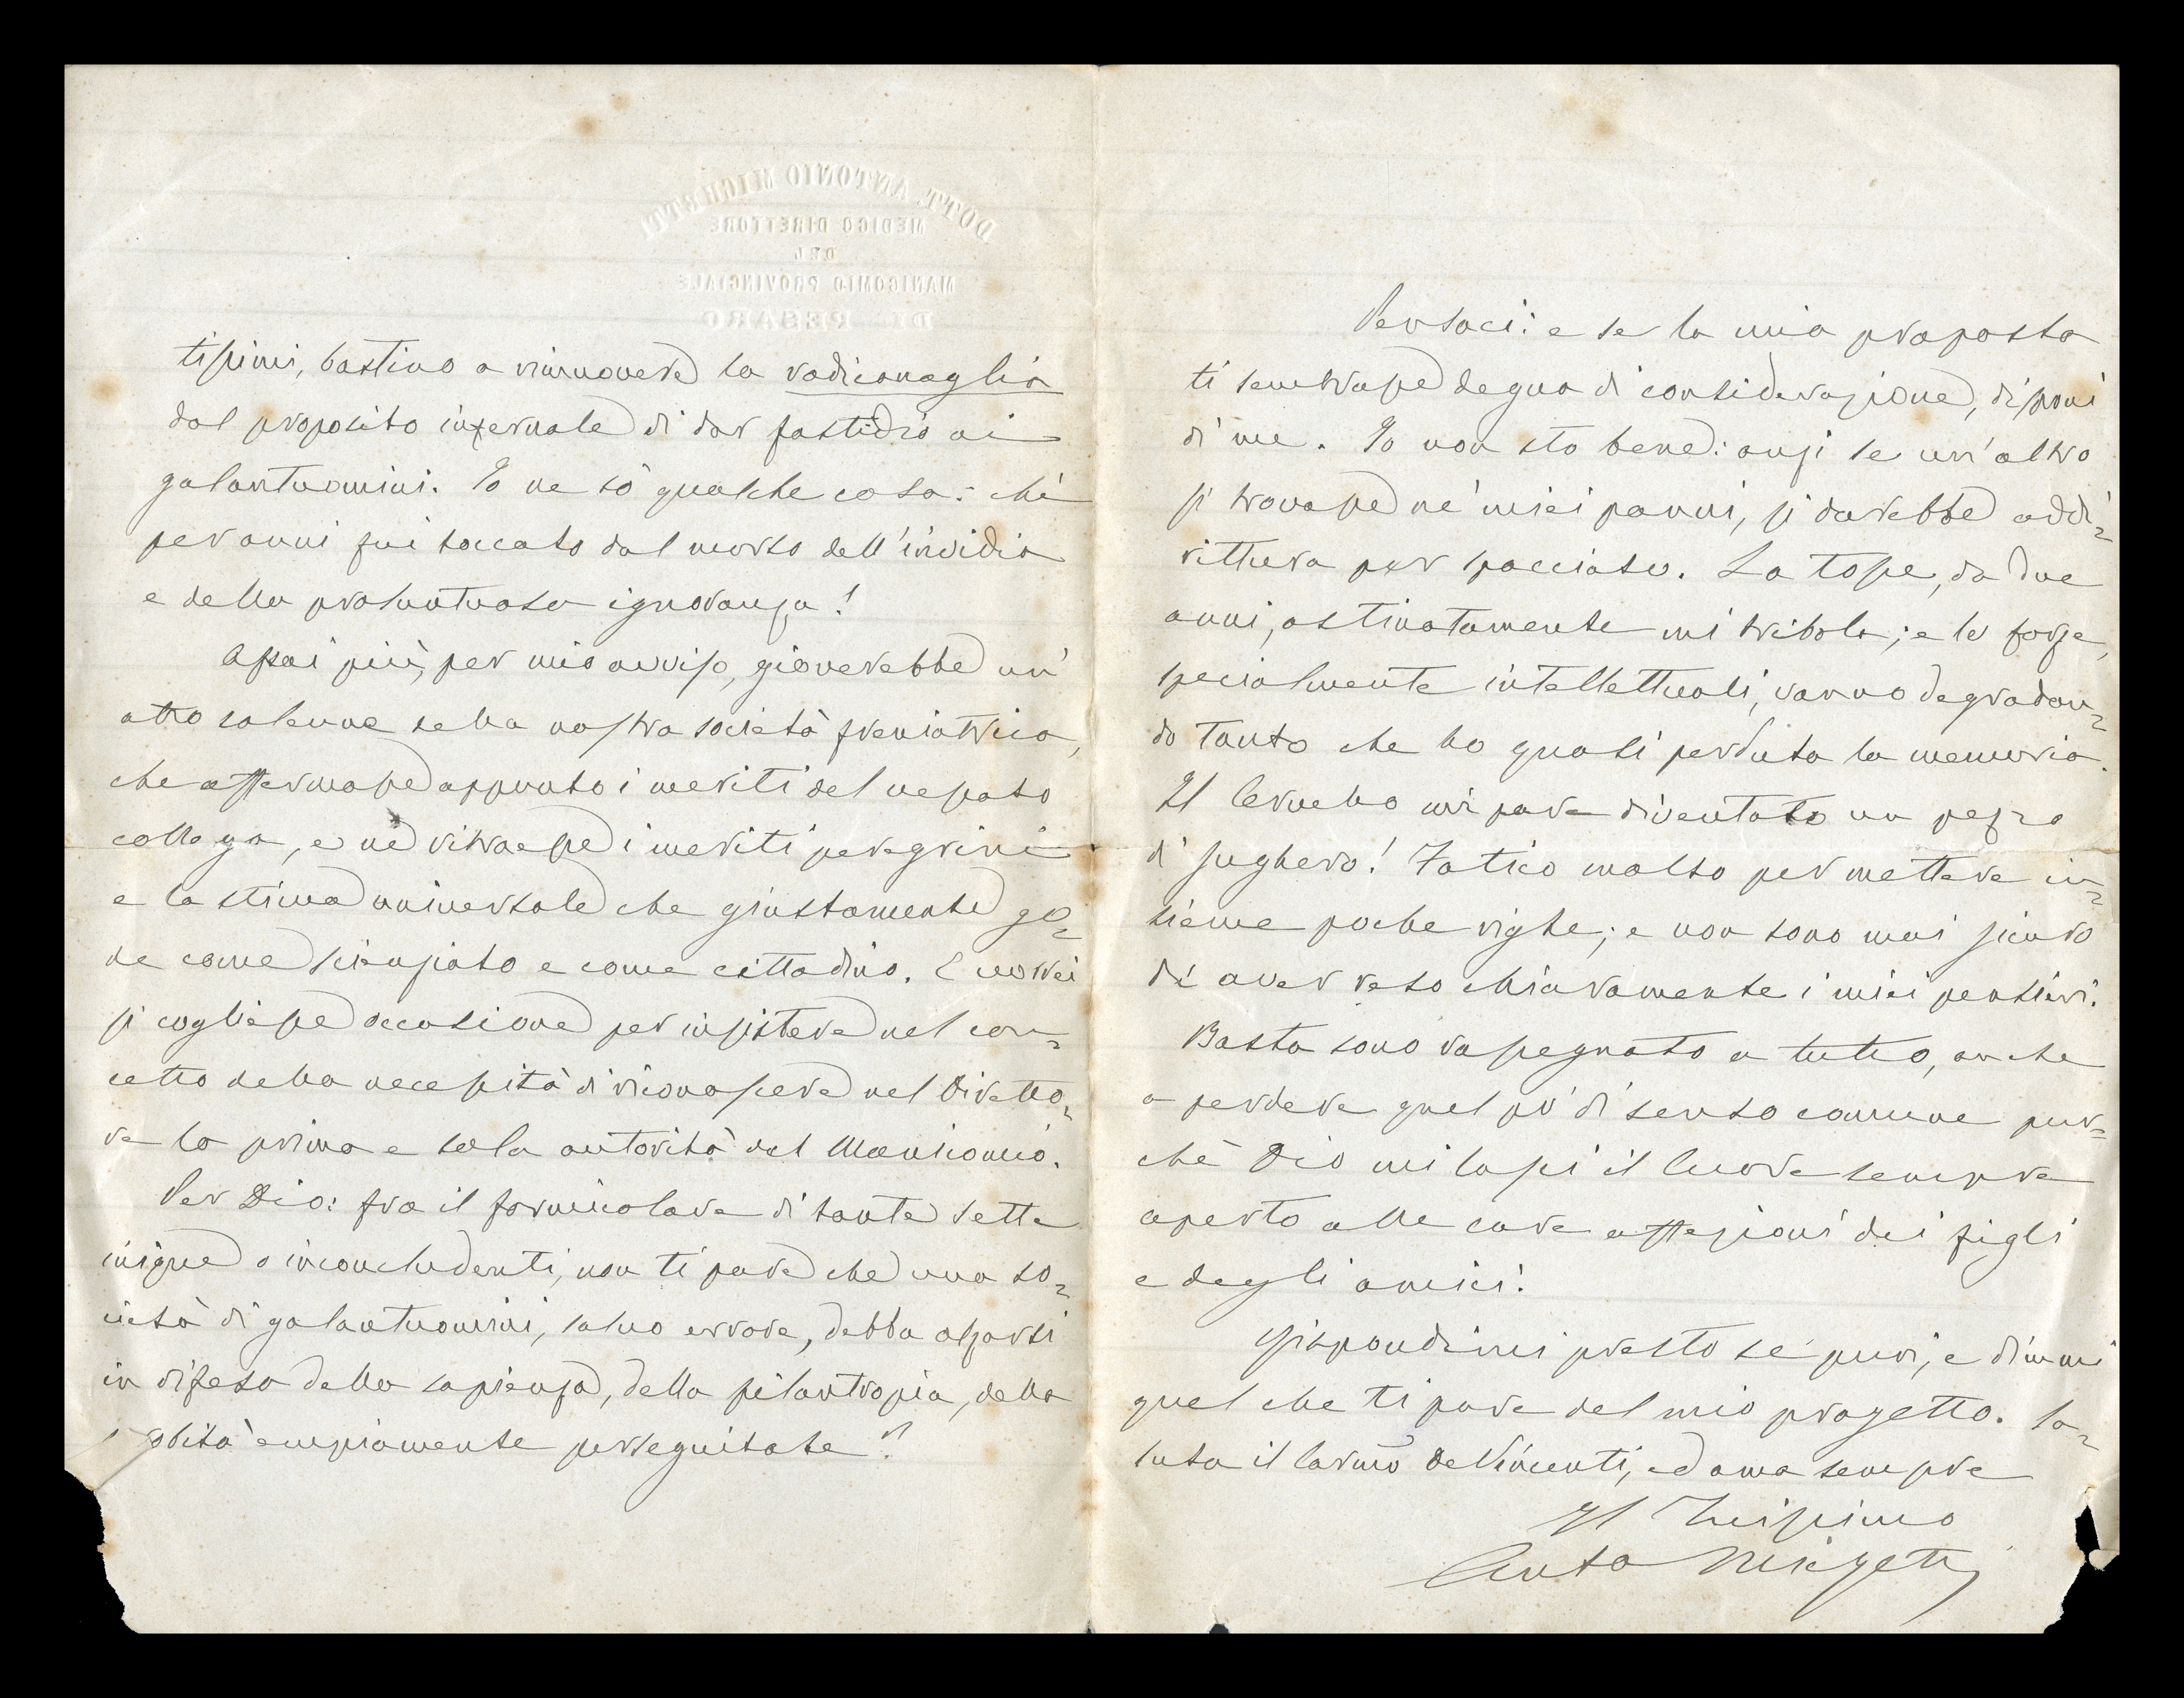 DOTT. ANTONIO MICHETTI
MEDICO DIRETTORE
DEL
MANICOMIO PROVINCIALE
DI PESARO
tissimi, bastino a rimuovere la radicanaglia
dal proposito infernale di dar fastidio ai
galantuomini. Io ne sò qualche cosa: chè
per anni fui toccato dal morso dell'invidia
e della prosuntuosa ignoranza!
Assai più, per mio avviso, gioverebbe un'
atto solenne della nostra società freniatrica,
che affermasse appunto i meriti del vessato
collega, e ne ritraesse i meriti peregrini
e la stima universale che giustamente go=
de come scienziato e come cittadino. E vorrei
si cogliesse occasione per insistere nel con=
cetto della necessità di riconoscere nel Diretto=
re la prima e sola autorità del Manicomio.
Per Dio: fra il formicolare di tante sette
inique o inconcludenti, non ti pare che una so=
cietà di galantuomini, salvo errore, debba alzarsi
in difesa della sapienza, della filantropia, della
probità empiamente perseguitate?
Pensaci: e se la mia proposta
ti sembrasse degna di considerazione, disponi
di me. Io non sto bene: anzi se un'altro
si trovasse ne' miei panni, si darebbe addi=
rittura per spacciato. La tosse, da due
anni, ostinatamente mi tribola; e le forze,
specialmente intellettuali, vanno degradan=
do tanto che ho quasi perduta la memoria.
Il cervello mi pare diventato un pezzo
di sughero! Fatico molto per mettere in=
sieme poche righe; e non sono mai sicuro
di aver reso chiaramente i miei pensieri.
Basta sono rassegnato a tutto, anche
a perdere quel po' di senso comune pur=
chè Dio mi lassi il cuore sempre
aperto alle care affezioni dei figli
e degli amici.
Rispondimi presto se puoi, e dimmi
quel che ti pare del mio progetto. Sa=
luta il carmo DeVincenti, ed ama sempre
Il Tuissimo
Anto Michetti